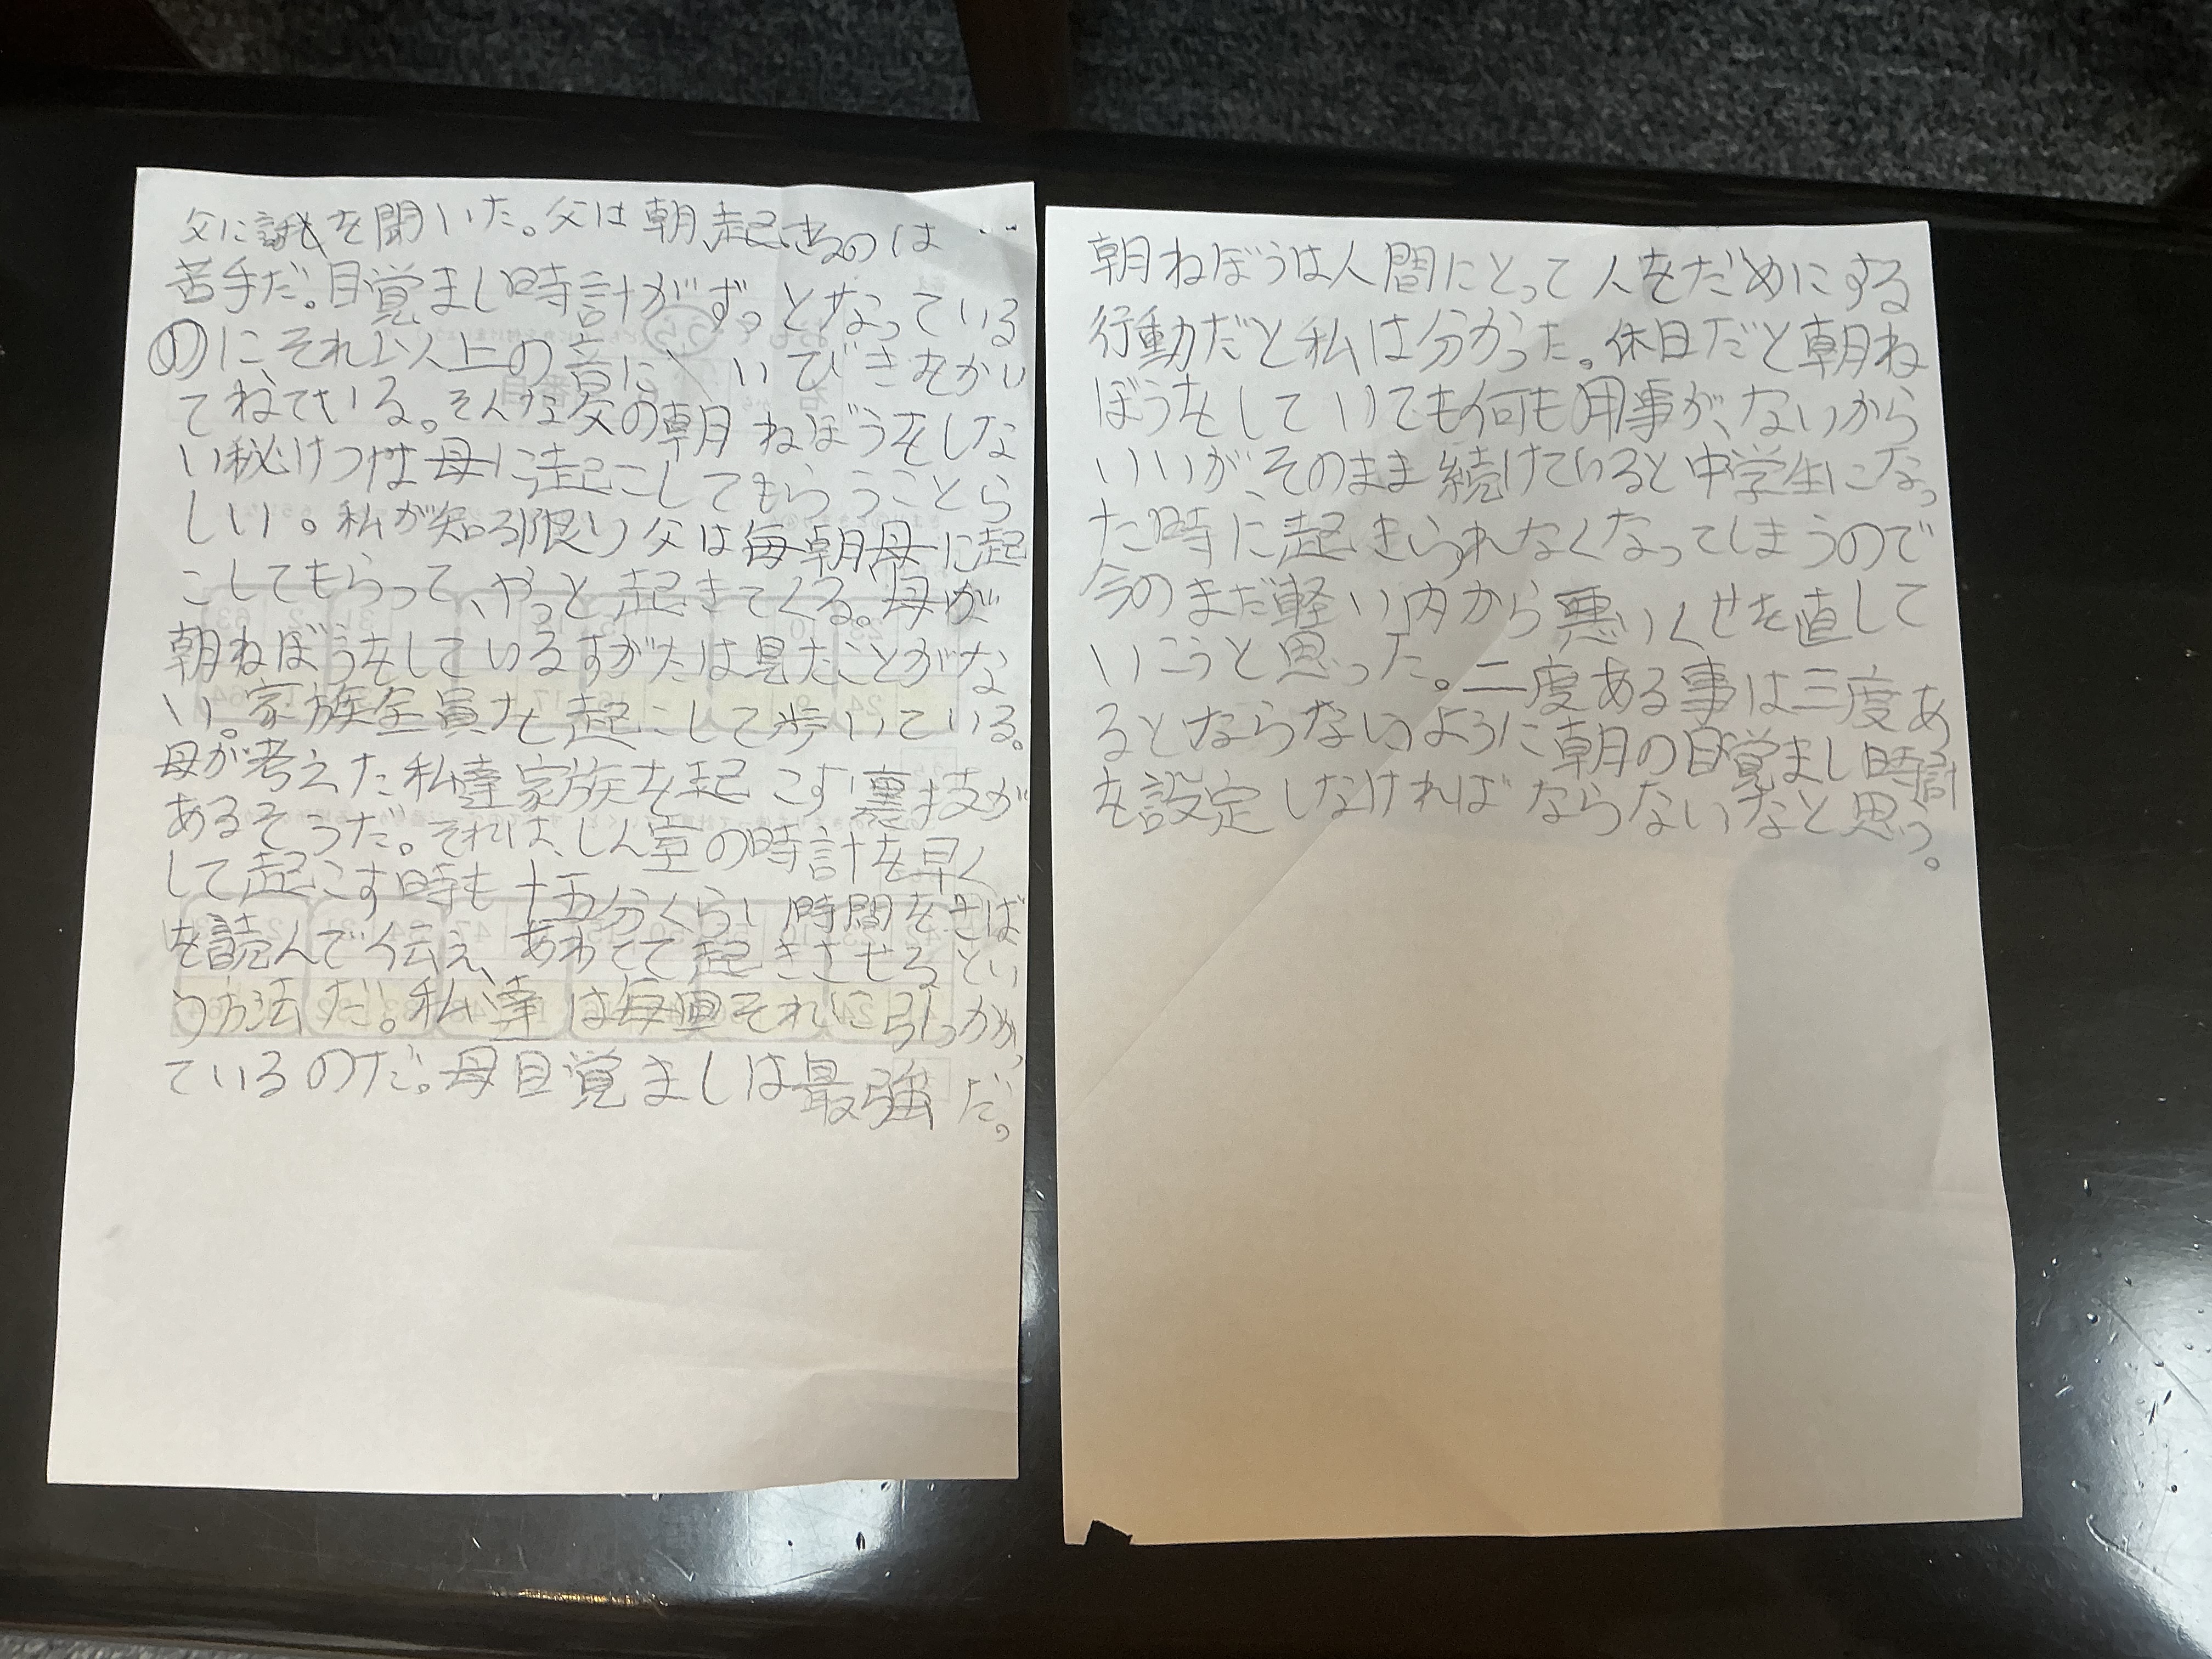 父に話を聞いた。父は朝、起きるのは
苦手だ。目覚まし時計がずっとなっている
のに、それ以上の音に、いびきをかい
てねている。そんな父の朝ねぼうをしな
い秘けつは母に起こしてもらうことら
しい。私が知る限り父は毎朝母に起
こしてもらって、やっと起きてくる。母が
朝ねぼうをしているすがたは見たことがな
い。家族全員を起こして歩いている。
母が考えた私達家族を起こす裏技が
あるそうだ。それは、しん室の時計を早く
して起こす時も十五分くらい時間をさば
を読んで伝え、あわてて起きさせるとい
う方法だ。私達は毎回それに引っかかっ
ているのだ。母目覚ましは最強だ。
朝ねぼうは人間にとって人をだめにする
行動だと私は分かった。休日だと朝ね
ぼうをしていても何も用事が、ないから
いいが、そのまま続けていると中学生になっ
た時に起きられなくなってしまうので
今のまだ軽い内から悪いくせを直して
いこうと思った。二度ある事は三度あ
るとならないように朝の目覚まし時計
を設定しなければならないなと思う。